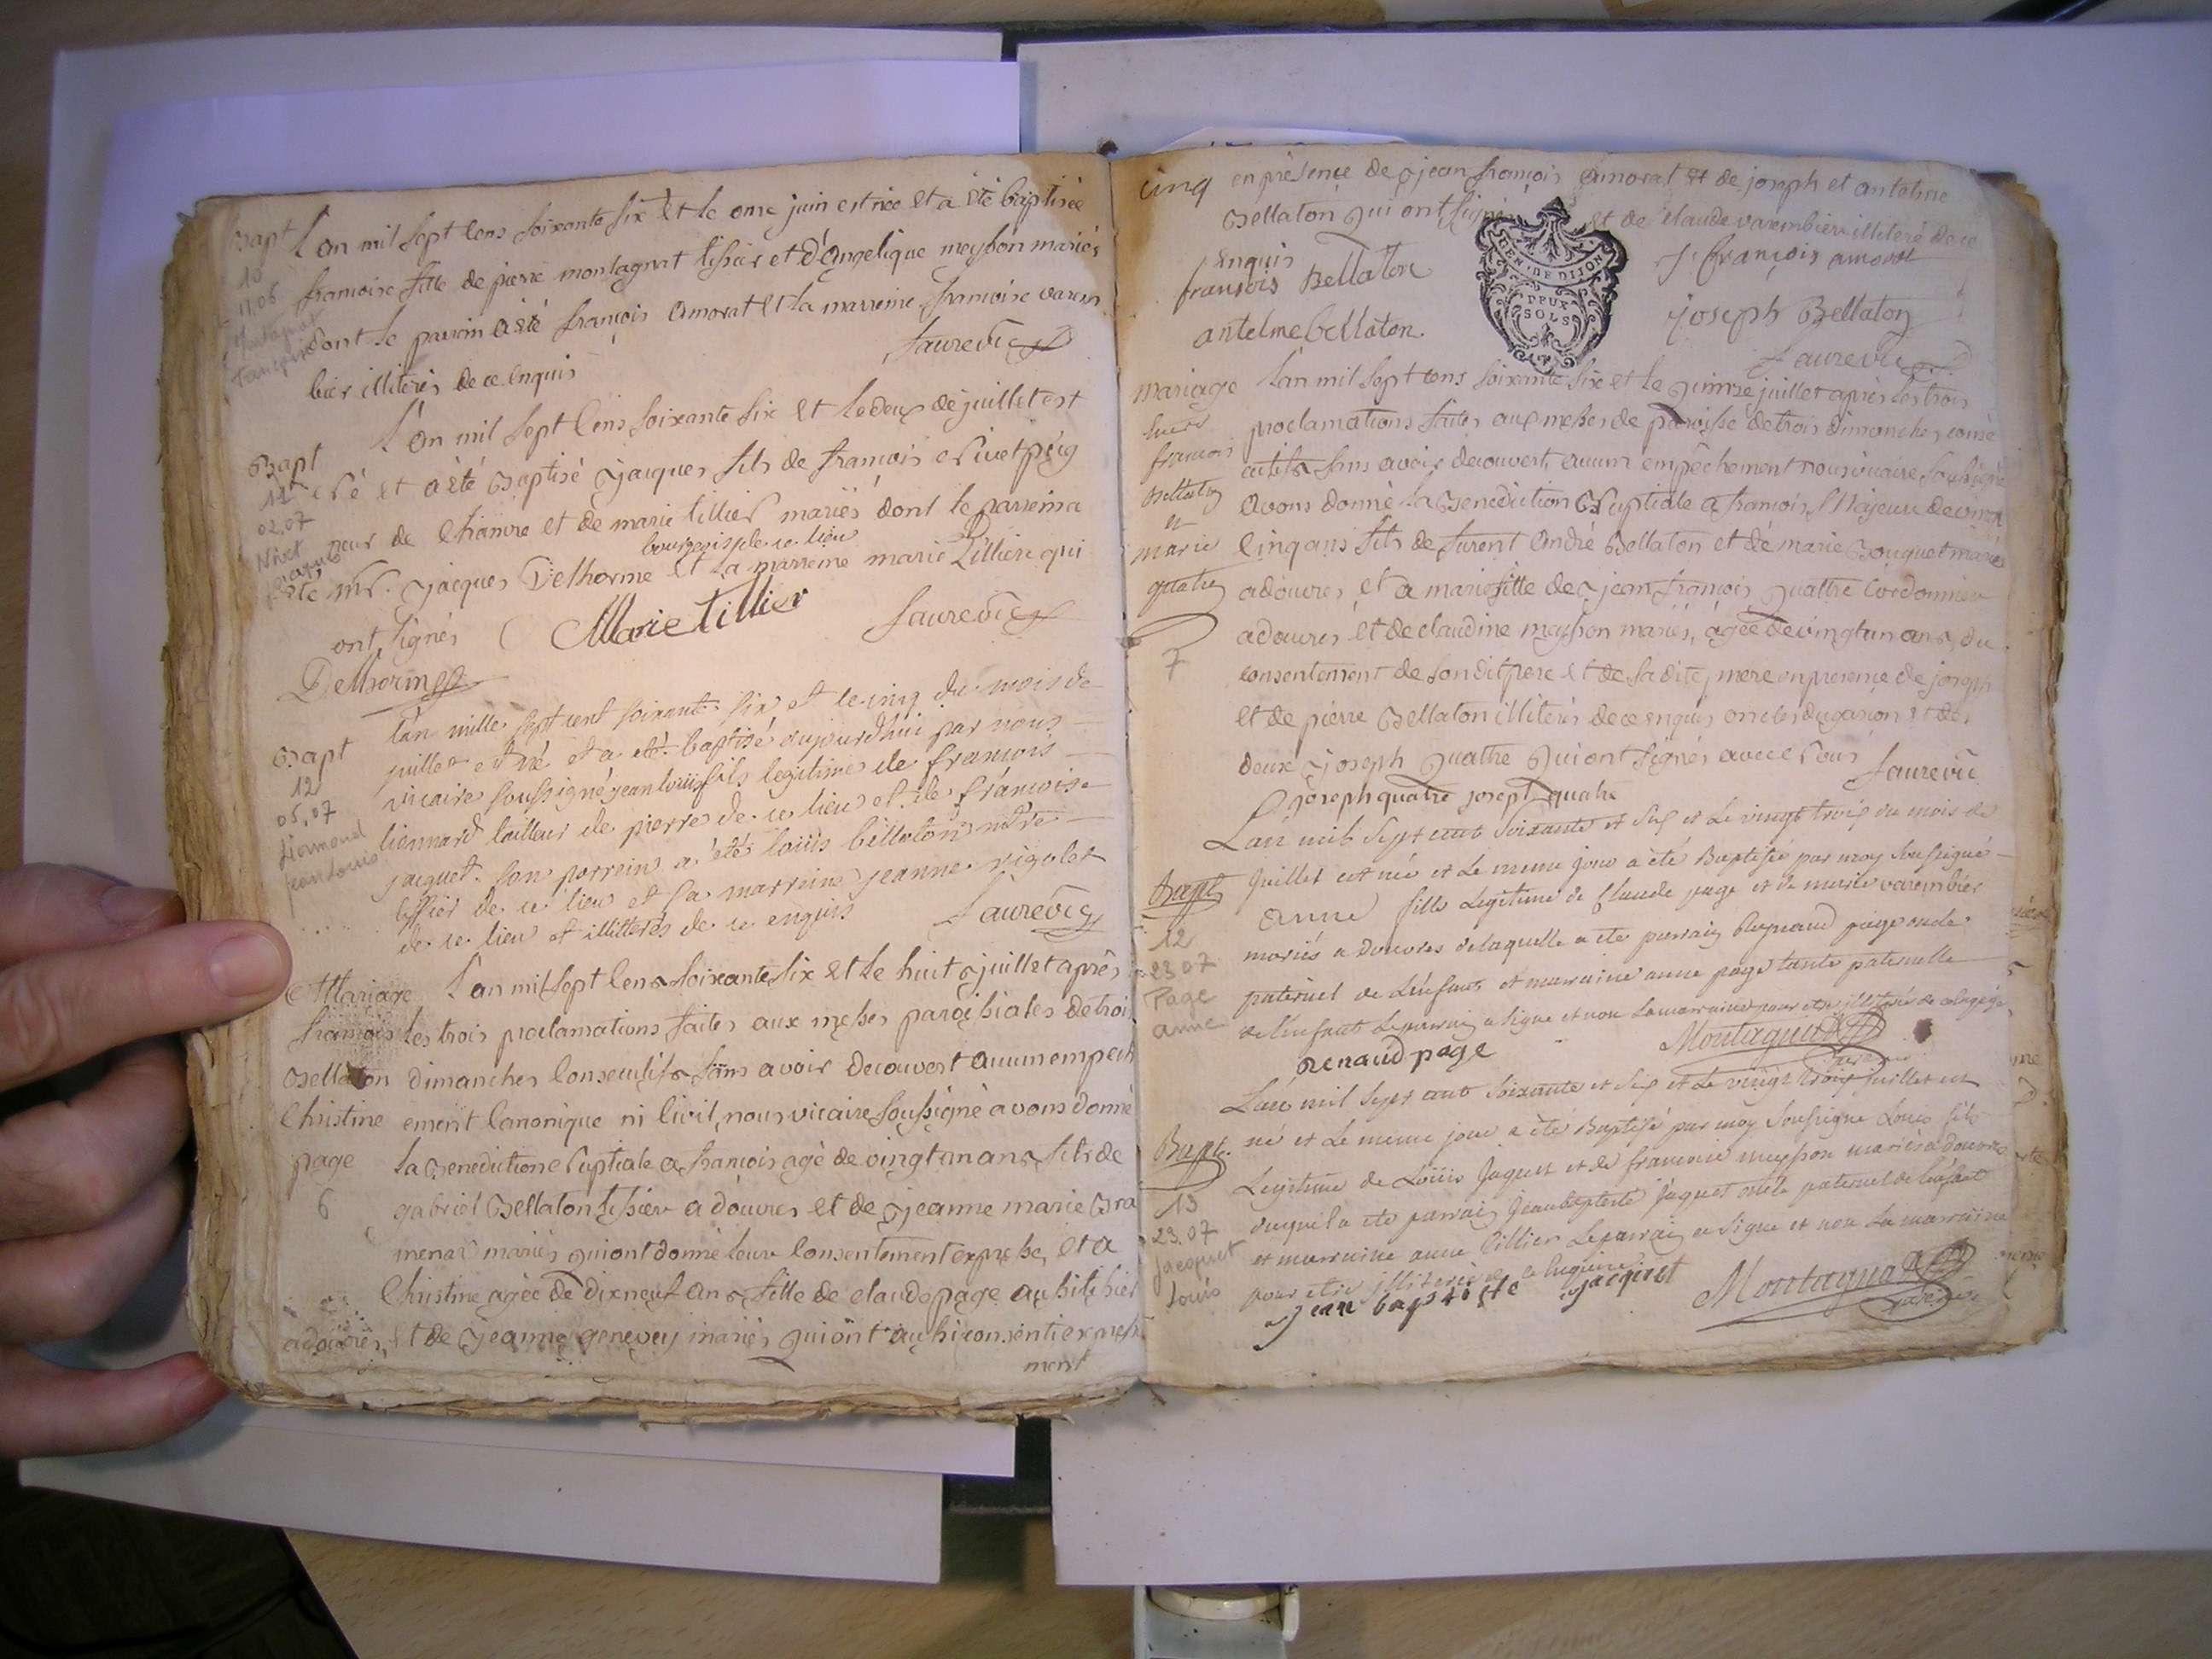 Bapt L'an mil sept cens soixante six et le onze juin est née et a été baptisée
10
11.06
françoise fille de pierre montagnat tissier et d'angelique meysson mariés
dont le parrin a été françois amorat et la marreine françoise varem
bier illiterés de ce enquis
faure vic
Bapt L'an mil sept cens soixante six et le deux de juillet est
11
02.07
Nivet
jacques
né et a été Baptisé jacques fils de françois Nivet peig
neur de chanvre et de marie tillier mariés dont le parrein a
bourgeois de ce lieu
été mr. jacques Delhorme et la marreine marie Tilliere qui
ont signés Marie tillier faure vic
Delhorme
Bapt
12
05.07
jean Louis
L'an mille sept cent soixante six et le cinq du mois de
juillet est né et a eté baptisé aujourdhui par nous
vicaire soussigné jean louis fils legitime de françois
lionnard tailleur de pierre de ce lieu et de françoise
jacquet. son parrein a été louis bellaton mtre
tissier de ce lieu et sa marreine jeanne rigolet
de ce lieu et illitterés de ce enquis faure vic
Mariage L'an mil sept cens soixante six et le huit juillet après
françois les trois proclamations faites aux messes paroissiales de trois
Bellaton dimanches consecutifs sans avoir decouvert aucun empech
Christine ement canonique ni civil, nous vicaire soussigné avons donné
page la Benediction Nuptiale a françois agé de vingt un ans fils de
6 gabriel Bellaton tissier a douvres et de jeanne marie Bra
menar mariés qui ont donné leur consentement expresse, et a
Christine agée de dix neuf ans fille de claude page aussi tissier
a douvres, et de jeanne genevey mariés qui ont aussi consenti expresse
ment
cinq en présence de jean françois amorat et de joseph et antelme
Bellaton qui ont signés et de claude varembier illiteré de ce
enquis
françois Bellaton
GEN. DE DIJON
DEUX
SOLS
j françois amorat
antelme bellaton
joseph Bellaton
faure vic
mariage L'an mil sept cens soixante six et le quinze juillet après les trois
proclamations faites aux messes de paroisse de trois dimanches conse
françois
Bellaton
et
marie
quatre
7
cutifs sans avoir decouvert aucun empêchement nous vicaire soussigné
avons donné la Benediction Nuptiale a françois Majeur de vingt
cinq ans fils de furent André Bellaton et de marie Bouquet mariés
a douvres, et a marie fille de jean françois quattre cordonnier
a douvres et de claudine meysson mariés, agée de vingt un ans, du
consentement de son dit pere et de sa dite mere en presence de joseph
et de pierre Bellaton illiterés de ce enquis oncles du garçon et de
deux joseph quatre qui ont signés avec Nous faure vic
joseph quatre joseph quatre
L'an mil sept cent soixante et six et le vingt trois du mois de
Bapt juillet est née et le meme jour a été Baptisée par moy soussigné
12
23.07
Page
anne
anne fille Legitime de Claude page et de marie varembier
mariés a douvres de laquelle a ete parrain Reynaud page oncle
paternel de L'enfant et marraine anne page tante paternelle
de l'enfant Le parrain a signé et non La marraine pour etre illiterée de ce enquise
renaud page Montagnat
L'an mil sept cent soixante et six et Le vingt trois juillet est
Bapt. né et Le meme jour a été Baptisé par moy soussigné Louis fils
13
23.07
jacquet
Louis
Legitime de Louis Jaquet et de francoise meysson mariés a douvres
duquel a ete parrain Jean baptiste jaquet oncle paternel de l'enfant
et marraine anne Tillier Le parrain a signé et non La marraine
pour etre illiterée de ce enquise
jean baptiste jacquet Montagnat